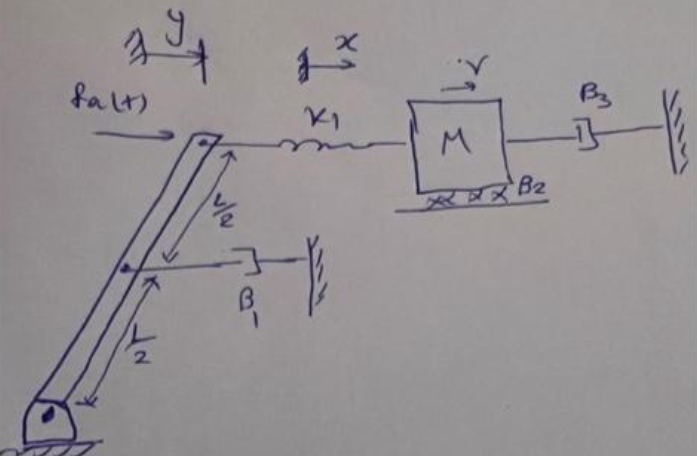 y
x
fa(t)
K1
v
M
B3
B2
L/2
B1
L/2